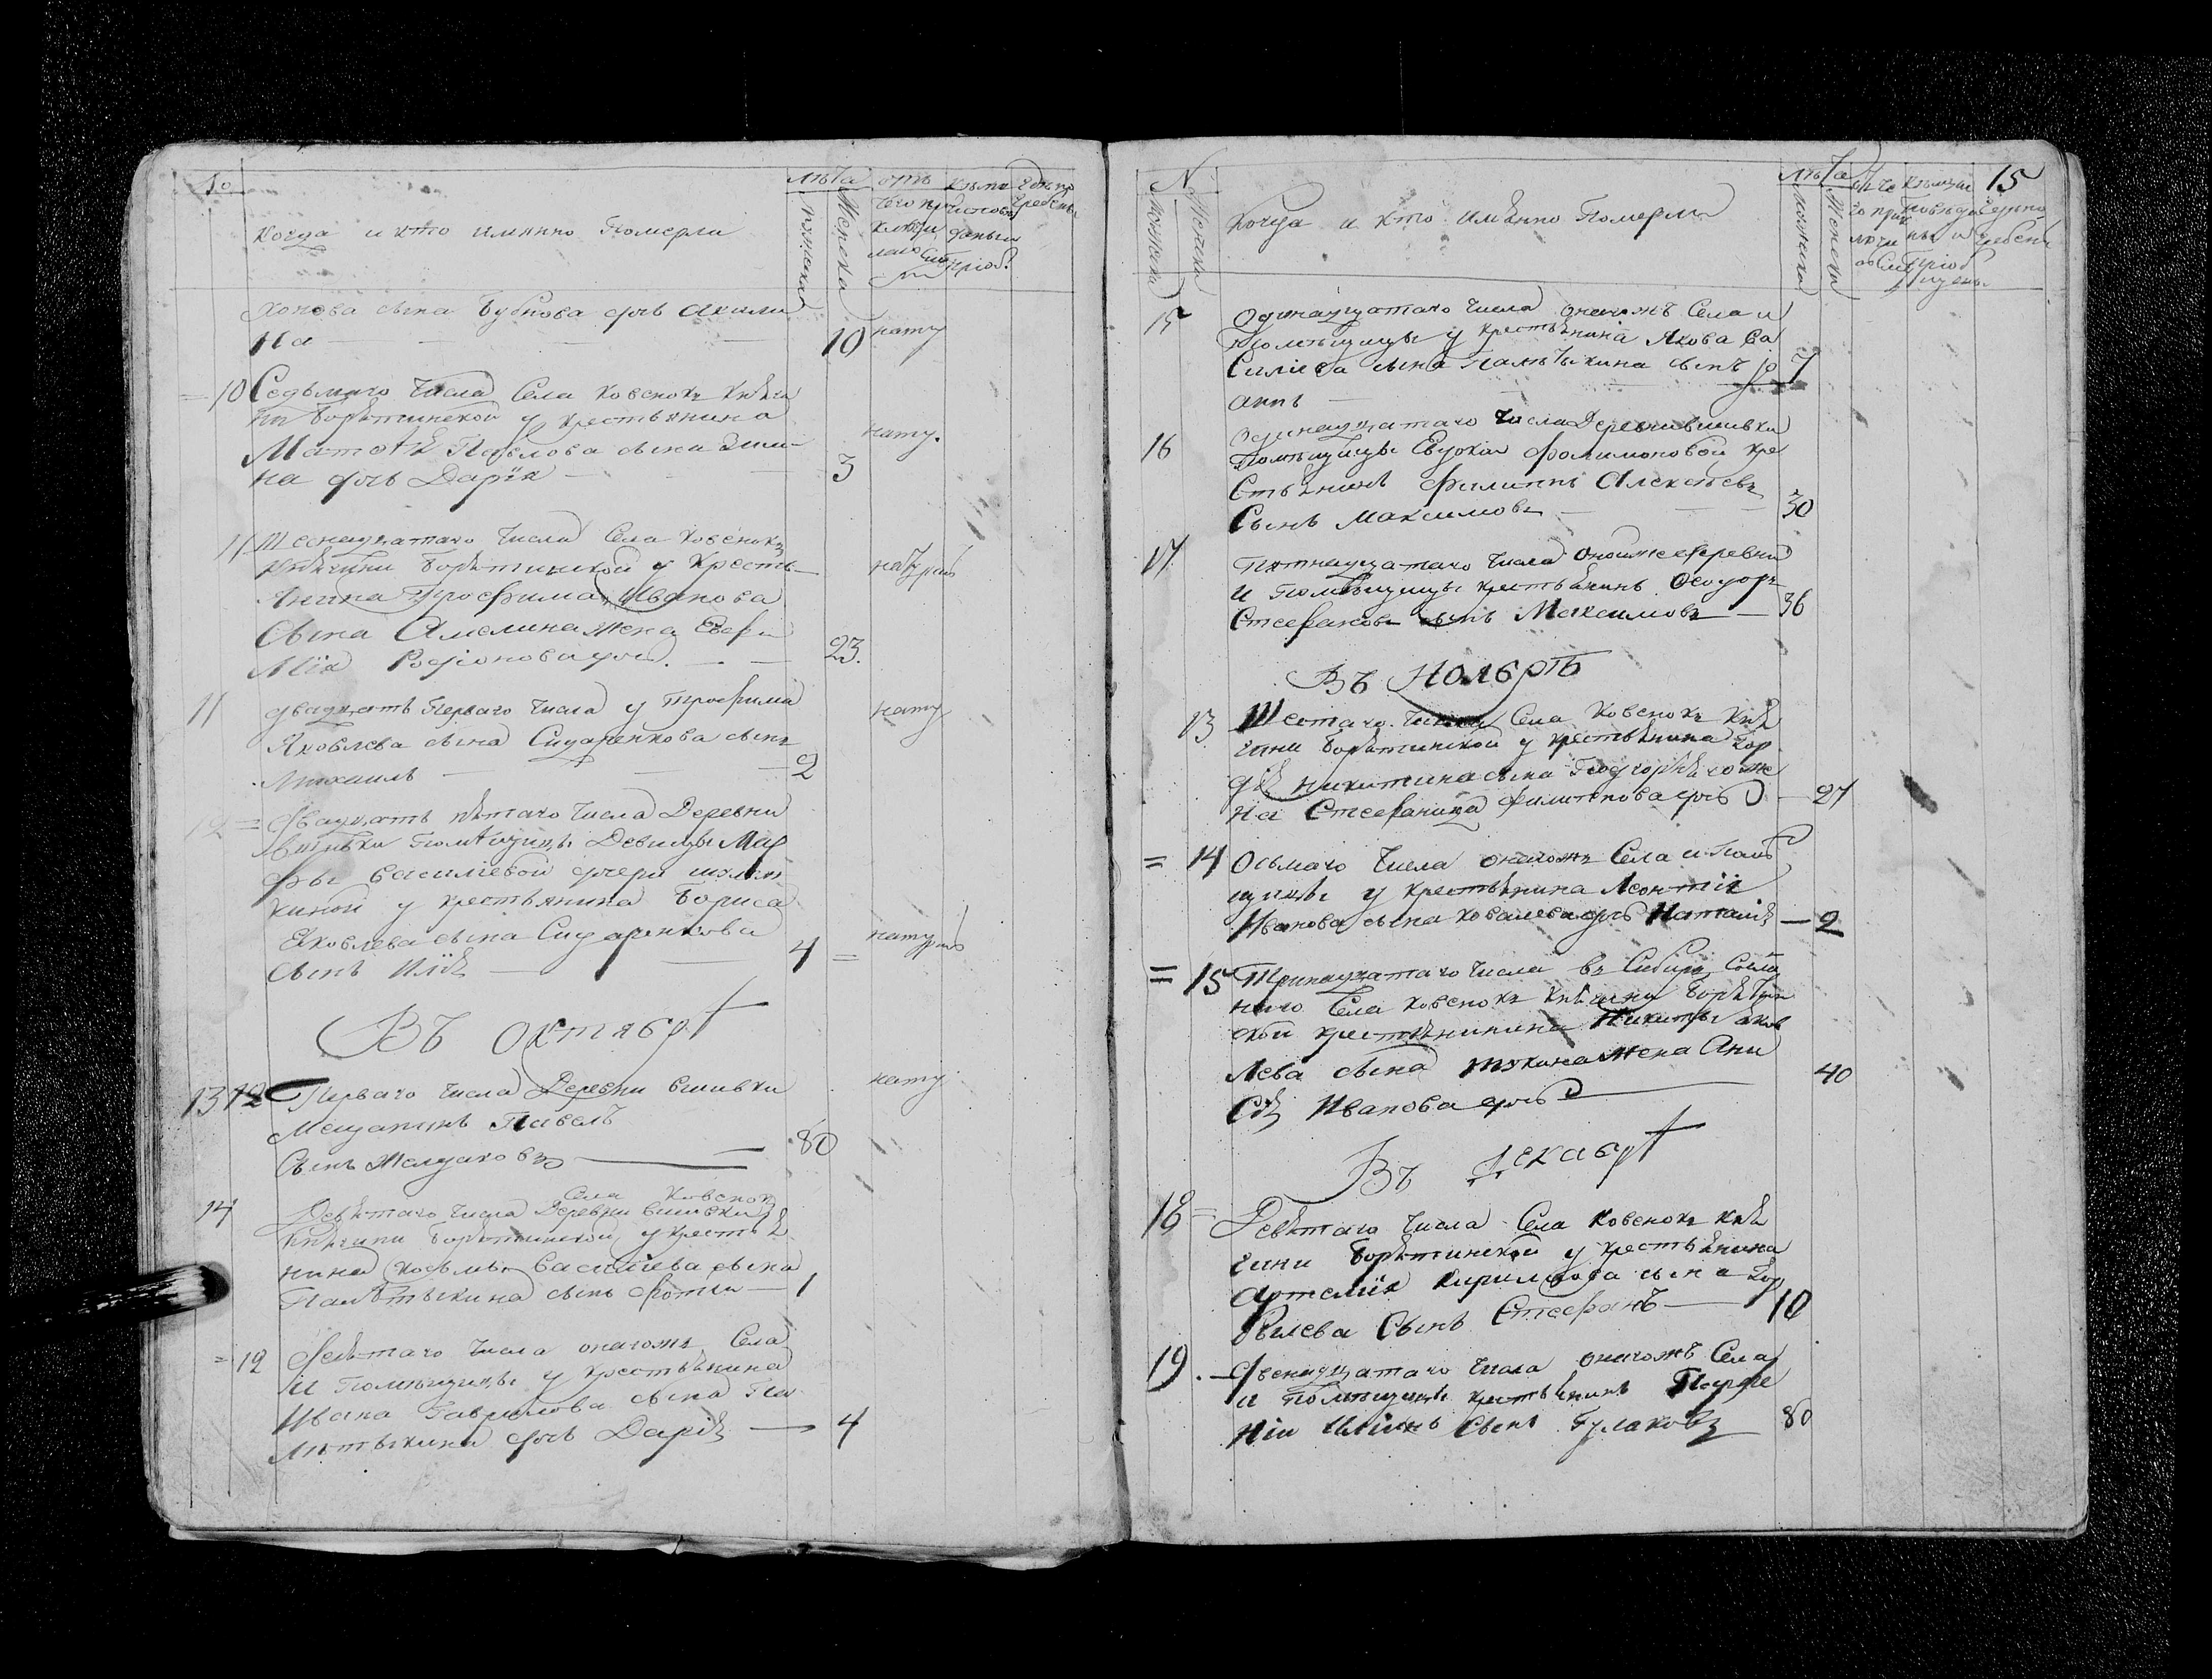 No
Когда и кто имянно Померли
Лѣта
Мужеска
Женска
отъ чего приключилась смерть
Кѣмъ исповѣданы и приоб.
Гдѣ погребены
хонова сына Бубнова дочь Акили
На — 10 нату
= 10 Седьмаго Числа Села Ковенокъ Княги
ни Борятинской у крестьянина
Матвѣя Павлова сына
на дочь Дарїя — 3 нату.
11 Шеснадцатаго Числа Села Ковенокъ
Княгини Борятинской у Кресть
янина Трофима Иванова
Сына Амелина жена Евфи
мїя Родіонова дочь. — 23. натураль
11 двадцать Перваго Числа у Трофима
Яковлева сына Сидаренкова сынъ
Михаилъ — 2 нату
12 = двадцать пятаго Числа Деревни
Вшивки Помѣщицы Девицы Мар
фы Василіевой дочери
киной у крестьянина Бориса
Яковлева сына Сидаренкова
сынъ Илія — 4 = натураль
Въ октябрѣ
13 12 Перваго Числа Деревни Вшивки
Мещанинъ Павелъ
Сынъ Желудковъ — 80 нату
Села Ковенокъ
14 Девятаго Числа Деревни Вшивки
Княгини Борятинской у крестья
нина Косьмы Василіева сына
Памѣтыкина сынъ Фотій — 1
= 12 Девятаго Числа онагожъ Села
и Помѣщицы у крестьянина
Ивана Гаврилова сына Па
мѣтыкина дочь Дарія — 4
N
Мужеска
Женска
Когда и кто имянно Померли
Лѣта
Мужеска
Женска
15
15 Одинадцатаго Числа онагожъ Села и
Помѣщицы у крестьянина Якова Ва
Силіева сына Памѣтыкина сынъ Іо 7
аннъ —
16 Одинадцатаго Числа Деревни Вшивки
Помѣщицы Евдокіи Филимоновой кре
Стьянинъ Филиппъ Алексѣевъ
Сынъ Максимовъ — 30
17. Пятнадцатаго Числа Онойже деревни
и Помѣщицы крестьянинъ Ѳеодоръ
Стефановъ сынъ Максимовъ — 36
Въ Ноябрѣ
13 Шестаго Числа Села Ковенокъ Кня
гини Борятинской у крестьянина Гор
дѣя Никитина сына же
на Стефанида Филипова дочь — 27
= 14 Осьмаго Числа онагожъ Села и Помѣ
щицы у крестьянина Леонтія
Иванова сына Ковалева дочь Наталія — 2
= 15 Тринадцатаго Числа въ Сибирь Сосла
наго Села Ковенокъ Княгини Борятин
ской крестьянинина Никиты Яков
Лева сына жена Ани
Сія Иванова дочь — 40
Въ декабрѣ
18 = Девятаго Числа Села Ковенокъ Кня
гини Борятинской у крестьянина
Артемїя Кирилова сына Ко
Сынъ Стефанъ — 10
19. — двенадцатаго Числа онагожъ Села
и Помѣщицы крестьянинъ Парфе
ній Иліинъ сынъ Гулаковъ 80